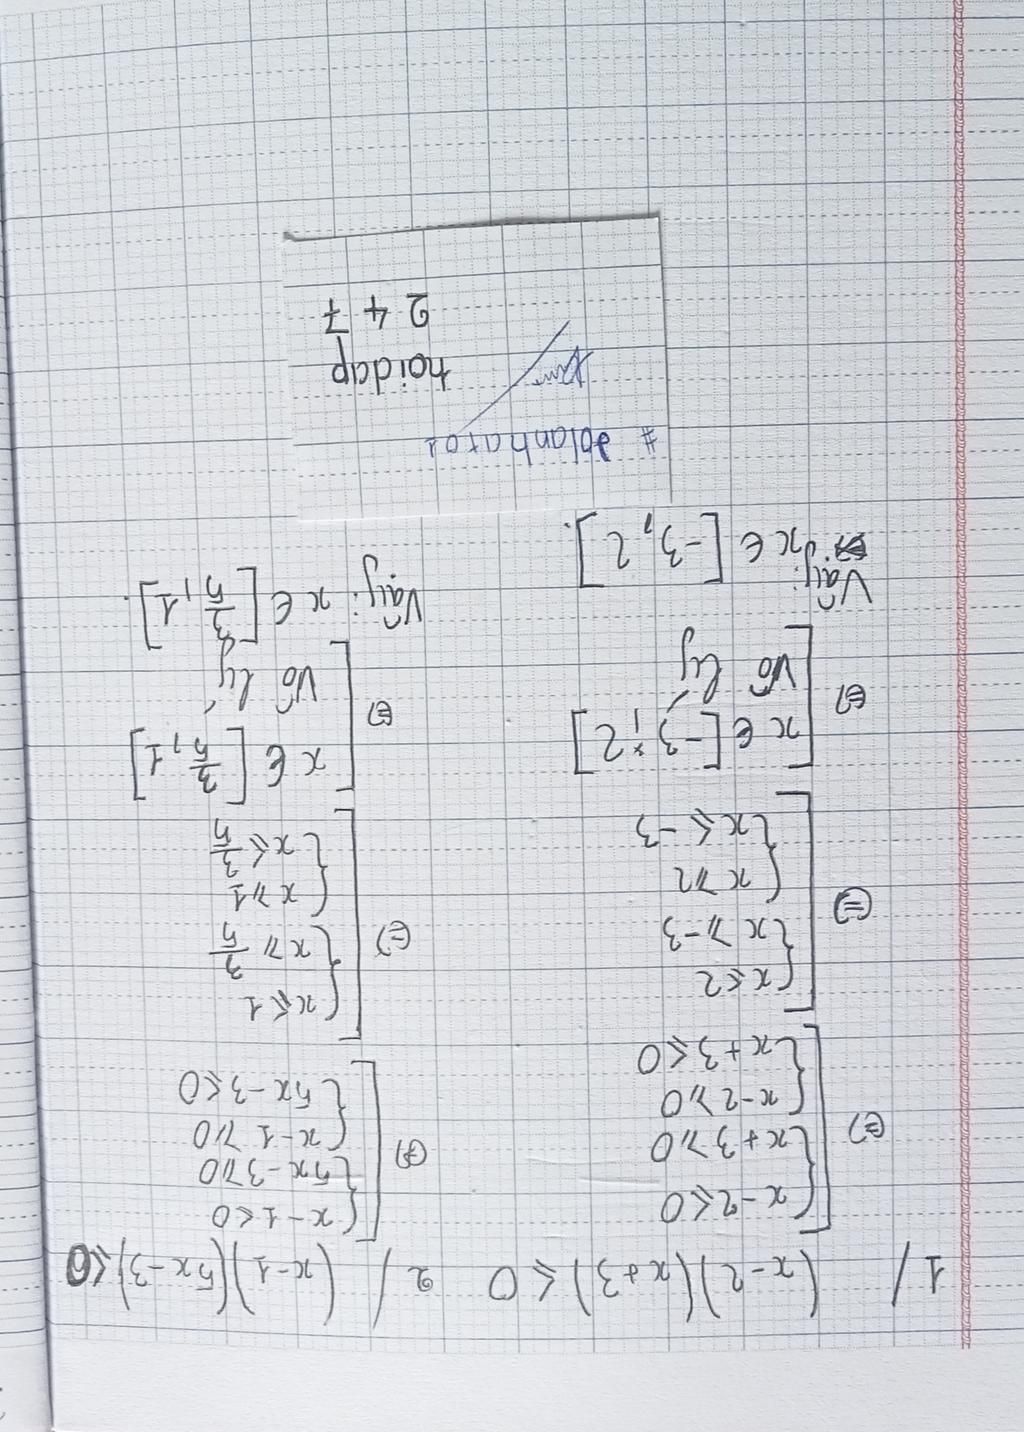 1/ (x-2)(x+3) ≤ 0
⇔ [ { x-2 ≤ 0
{ x+3 ≥ 0
{ x-2 ≥ 0
{ x+3 ≤ 0
⇔ [ { x ≤ 2
{ x ≥ -3
{ x ≥ 2
{ x ≤ -3
⇔ [ x ∈ [-3; 2]
vô lý
Vậy: x ∈ [-3, 2].
2/ (x-1)(5x-3) ≤ 0
⇔ [ { x-1 ≤ 0
{ 5x-3 ≥ 0
{ x-1 ≥ 0
{ 5x-3 ≤ 0
⇔ [ { x ≤ 1
{ x ≥ 3/5
{ x ≥ 1
{ x ≤ 3/5
⇔ [ x ∈ [3/5, 1]
vô lý
Vậy: x ∈ [3/5, 1].
hoidap
247